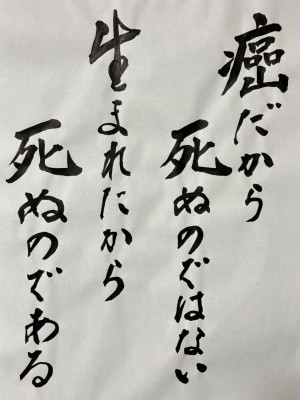 癌だから
死ぬのではない
生まれたから
死ぬのである